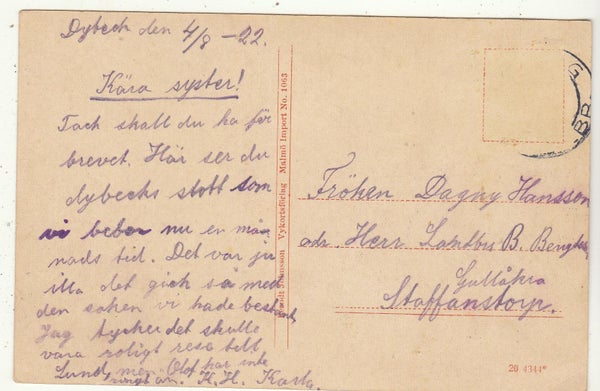 Dybeck den 4/8 -22.
Kära syster!
Tack skall du ha för
brevet. Här ser du
dybecks slott som
vi bebor nu en må-
nads tid. Det var ju
illa det gick så med
den saken vi hade bestämt
Jag tycker det skulle
vara roligt resa till
Lund, men Olof har inte
ringt än. H.H. Karla.
Johansson Vykortsförlag Malmö Import No. 1063
Fröken Dagny Hansson
adr. Herr Lantbr. B.
Gullåkra
Staffanstorp.
20 4344*